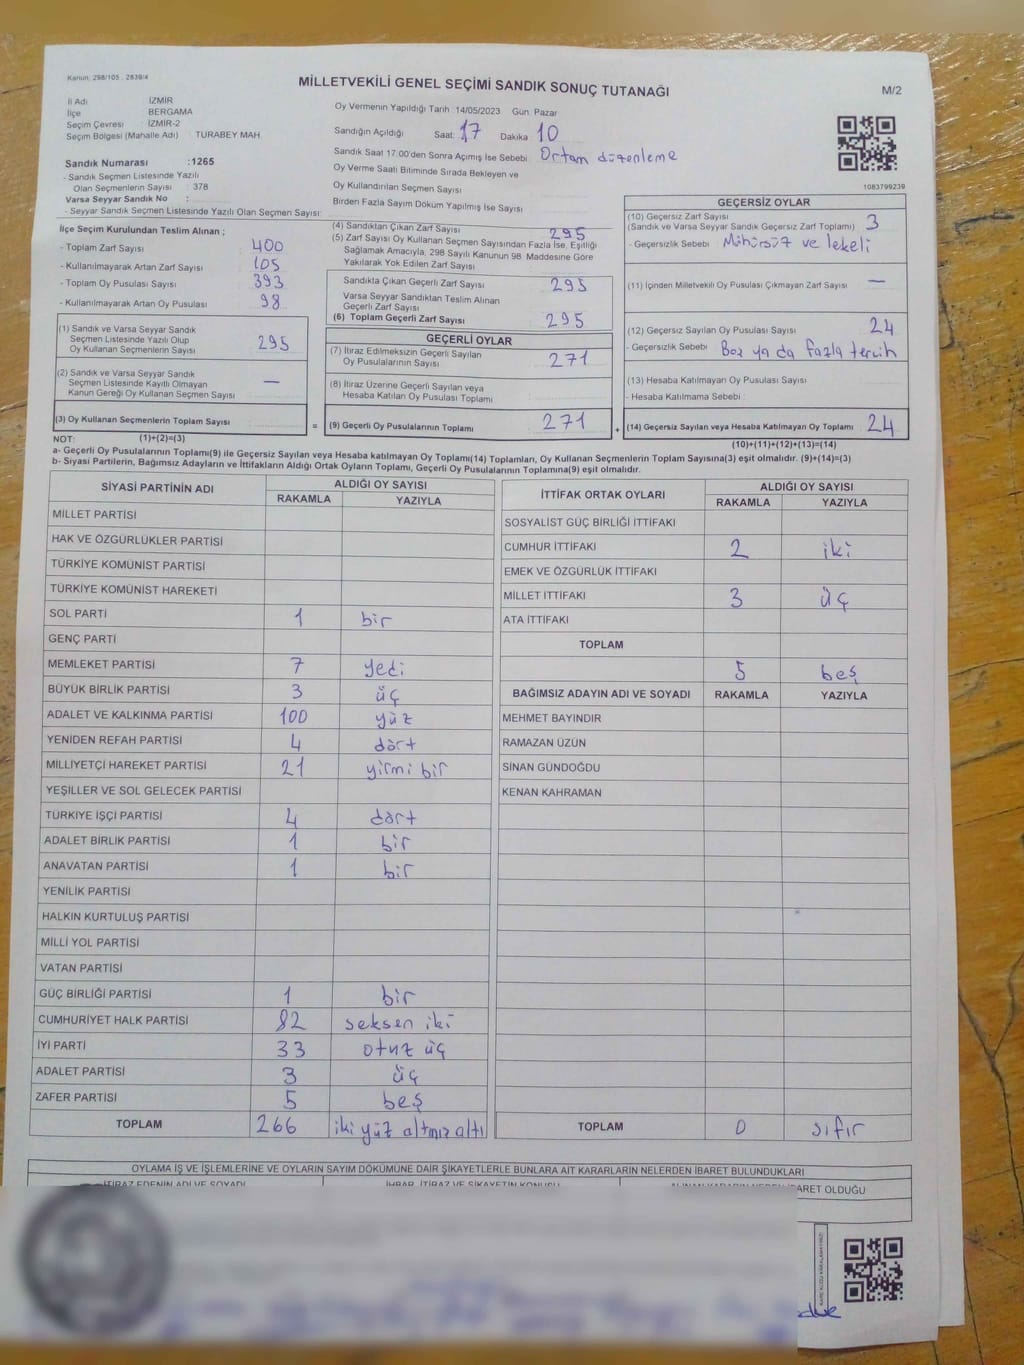 Kanun: 298/105 , 2839/4
MİLLETVEKİLİ GENEL SEÇİMİ SANDIK SONUÇ TUTANAĞI
M/2
İl Adı İZMİR
İlçe BERGAMA
Seçim Çevresi İZMİR-2
Seçim Bölgesi (Mahalle Adı) : TURABEY MAH.
Sandık Numarası :1265
- Sandık Seçmen Listesinde Yazılı
Olan Seçmenlerin Sayısı : 378
Varsa Seyyar Sandık No :
- Seyyar Sandık Seçmen Listesinde Yazılı Olan Seçmen Sayısı:
Oy Vermenin Yapıldığı Tarih :14/05/2023 Gün: Pazar
Sandığın Açıldığı Saat: 17 Dakika 10
Sandık Saat 17:00'den Sonra Açımış İse Sebebi Ortam düzenleme
Oy Verme Saati Bitiminde Sırada Bekleyen ve
Oy Kullandırılan Seçmen Sayısı
Birden Fazla Sayım Döküm Yapılmış İse Sayısı
1083799239
İlçe Seçim Kurulundan Teslim Alınan ;
- Toplam Zarf Sayısı : 400
- Kullanılmayarak Artan Zarf Sayısı : 105
- Toplam Oy Pusulası Sayısı : 393
- Kullanılmayarak Artan Oy Pusulası : 98
(1) Sandık ve Varsa Seyyar Sandık
Seçmen Listesinde Yazılı Olup
Oy Kullanan Seçmenlerin Sayısı : 295
(2) Sandık ve Varsa Seyyar Sandık
Seçmen Listesinde Kayıtlı Olmayan
Kanun Gereği Oy Kullanan Seçmen Sayısı : —
(3) Oy Kullanan Seçmenlerin Toplam Sayısı =
(4) Sandıktan Çıkan Zarf Sayısı 295
(5) Zarf Sayısı Oy Kullanan Seçmen Sayısından Fazla İse, Eşitliği
Sağlamak Amacıyla, 298 Sayılı Kanunun 98. Maddesine Göre
Yakılarak Yok Edilen Zarf Sayısı
Sandıkta Çıkan Geçerli Zarf Sayısı 295
Varsa Seyyar Sandıktan Teslim Alınan
Geçerli Zarf Sayısı
(6) Toplam Geçerli Zarf Sayısı 295
GEÇERLİ OYLAR
(7) İtiraz Edilmeksizin Geçerli Sayılan
Oy Pusulalarının Sayısı 271
(8) İtiraz Üzerine Geçerli Sayılan veya
Hesaba Katılan Oy Pusulası Toplamı
(9) Geçerli Oy Pusulalarının Toplamı 271 +
GEÇERSİZ OYLAR
(10) Geçersiz Zarf Sayısı
(Sandık ve Varsa Seyyar Sandık Geçersiz Zarf Toplamı) 3
- Geçersizlik Sebebi Mühürsüz ve lekeli
(11) İçinden Milletvekili Oy Pusulası Çıkmayan Zarf Sayısı —
(12) Geçersiz Sayılan Oy Pusulası Sayısı 24
- Geçersizlik Sebebi Boş ya da fazla tercih
(13) Hesaba Katılmayan Oy Pusulası Sayısı
- Hesaba Katılmama Sebebi
(14) Geçersiz Sayılan veya Hesaba Katılmayan Oy Toplamı 24
NOT: (1)+(2)=(3)
(10)+(11)+(12)+(13)=(14)
a- Geçerli Oy Pusulalarının Toplamı(9) ile Geçersiz Sayılan veya Hesaba katılmayan Oy Toplamı(14) Toplamları, Oy Kullanan Seçmenlerin Toplam Sayısına(3) eşit olmalıdır. (9)+(14)=(3)
b- Siyasi Partilerin, Bağımsız Adayların ve İttifakların Aldığı Ortak Oyların Toplamı, Geçerli Oy Pusulalarının Toplamına(9) eşit olmalıdır.
SİYASİ PARTİNİN ADI ALDIĞI OY SAYISI
RAKAMLA YAZIYLA
MİLLET PARTİSİ
HAK VE ÖZGÜRLÜKLER PARTİSİ
TÜRKİYE KOMÜNİST PARTİSİ
TÜRKİYE KOMÜNİST HAREKETİ
SOL PARTİ 1 bir
GENÇ PARTİ
MEMLEKET PARTİSİ 7 yedi
BÜYÜK BİRLİK PARTİSİ 3 üç
ADALET VE KALKINMA PARTİSİ 100 yüz
YENİDEN REFAH PARTİSİ 4 dört
MİLLİYETÇİ HAREKET PARTİSİ 21 yirmi bir
YEŞİLLER VE SOL GELECEK PARTİSİ
TÜRKİYE İŞÇİ PARTİSİ 4 dört
ADALET BİRLİK PARTİSİ 1 bir
ANAVATAN PARTİSİ 1 bir
YENİLİK PARTİSİ
HALKIN KURTULUŞ PARTİSİ
MİLLİ YOL PARTİSİ
VATAN PARTİSİ
GÜÇ BİRLİĞİ PARTİSİ 1 bir
CUMHURİYET HALK PARTİSİ 82 seksen iki
İYİ PARTİ 33 otuz üç
ADALET PARTİSİ 3 üç
ZAFER PARTİSİ 5 beş
TOPLAM 266 iki yüz altmız altı
İTTİFAK ORTAK OYLARI ALDIĞI OY SAYISI
RAKAMLA YAZIYLA
SOSYALİST GÜÇ BİRLİĞİ İTTİFAKI
CUMHUR İTTİFAKI 2 iki
EMEK VE ÖZGÜRLÜK İTTİFAKI
MİLLET İTTİFAKI 3 üç
ATA İTTİFAKI
TOPLAM
5 beş
BAĞIMSIZ ADAYIN ADI VE SOYADI RAKAMLA YAZIYLA
MEHMET BAYINDIR
RAMAZAN ÜZÜN
SİNAN GÜNDOĞDU
KENAN KAHRAMAN
TOPLAM 0 sıfır
OYLAMA İŞ VE İŞLEMLERİNE VE OYLARIN SAYIM DÖKÜMÜNE DAİR ŞİKAYETLERLE BUNLARA AİT KARARLARIN NELERDEN İBARET BULUNDUKLARI
İTİRAZ EDENİN ADI VE SOYADI İHBAR, İTİRAZ VE ŞİKAYETİN KONUSU
İBARET OLDUĞU